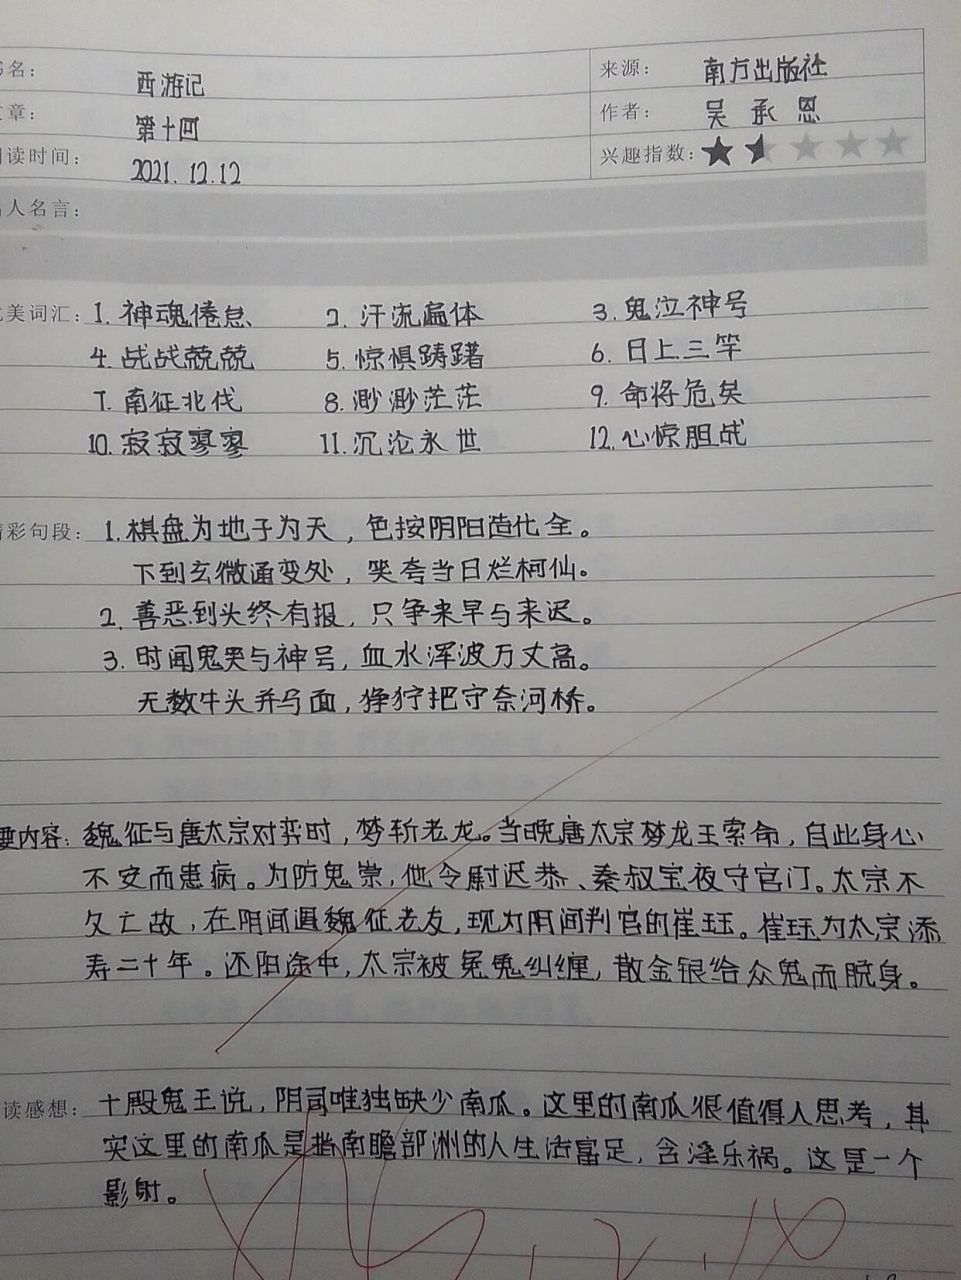 名： 西游记 来源： 南方出版社
章： 第十回 作者： 吴承恩
读时间： 2021.12.12 兴趣指数：
人名言：
美词汇： 1. 神魂倦怠 2. 汗流遍体 3. 鬼泣神号
4. 战战兢兢 5. 惊惧踌躇 6. 日上三竿
7. 南征北伐 8. 渺渺茫茫 9. 命将危矣
10. 寂寂寥寥 11. 沉沦永世 12. 心惊胆战
彩句段： 1. 棋盘为地子为天，色按阴阳造化全。
下到玄微通变处，笑夸当日烂柯仙。
2. 善恶到头终有报，只争来早与来迟。
3. 时闻鬼哭与神号，血水浑波万丈高。
无数牛头并马面，狰狞把守奈河桥。
要内容： 魏征与唐太宗对弈时，梦斩老龙。当晚唐太宗梦龙王索命，自此身心
不安而患病。为防鬼祟，他令尉迟恭、秦叔宝夜守宫门。太宗不
久亡故，在阴间遇魏征老友，现为阴间判官的崔珏。崔珏为太宗添
寿二十年。还阳途中，太宗被冤鬼纠缠，散金银给众鬼而脱身。
读感想： 十殿鬼王说，阴司唯独缺少南瓜。这里的南瓜很值得人思考，其
实这里的南瓜是指南瞻部洲的人生活富足，含淫乐祸。这是一个
影射。